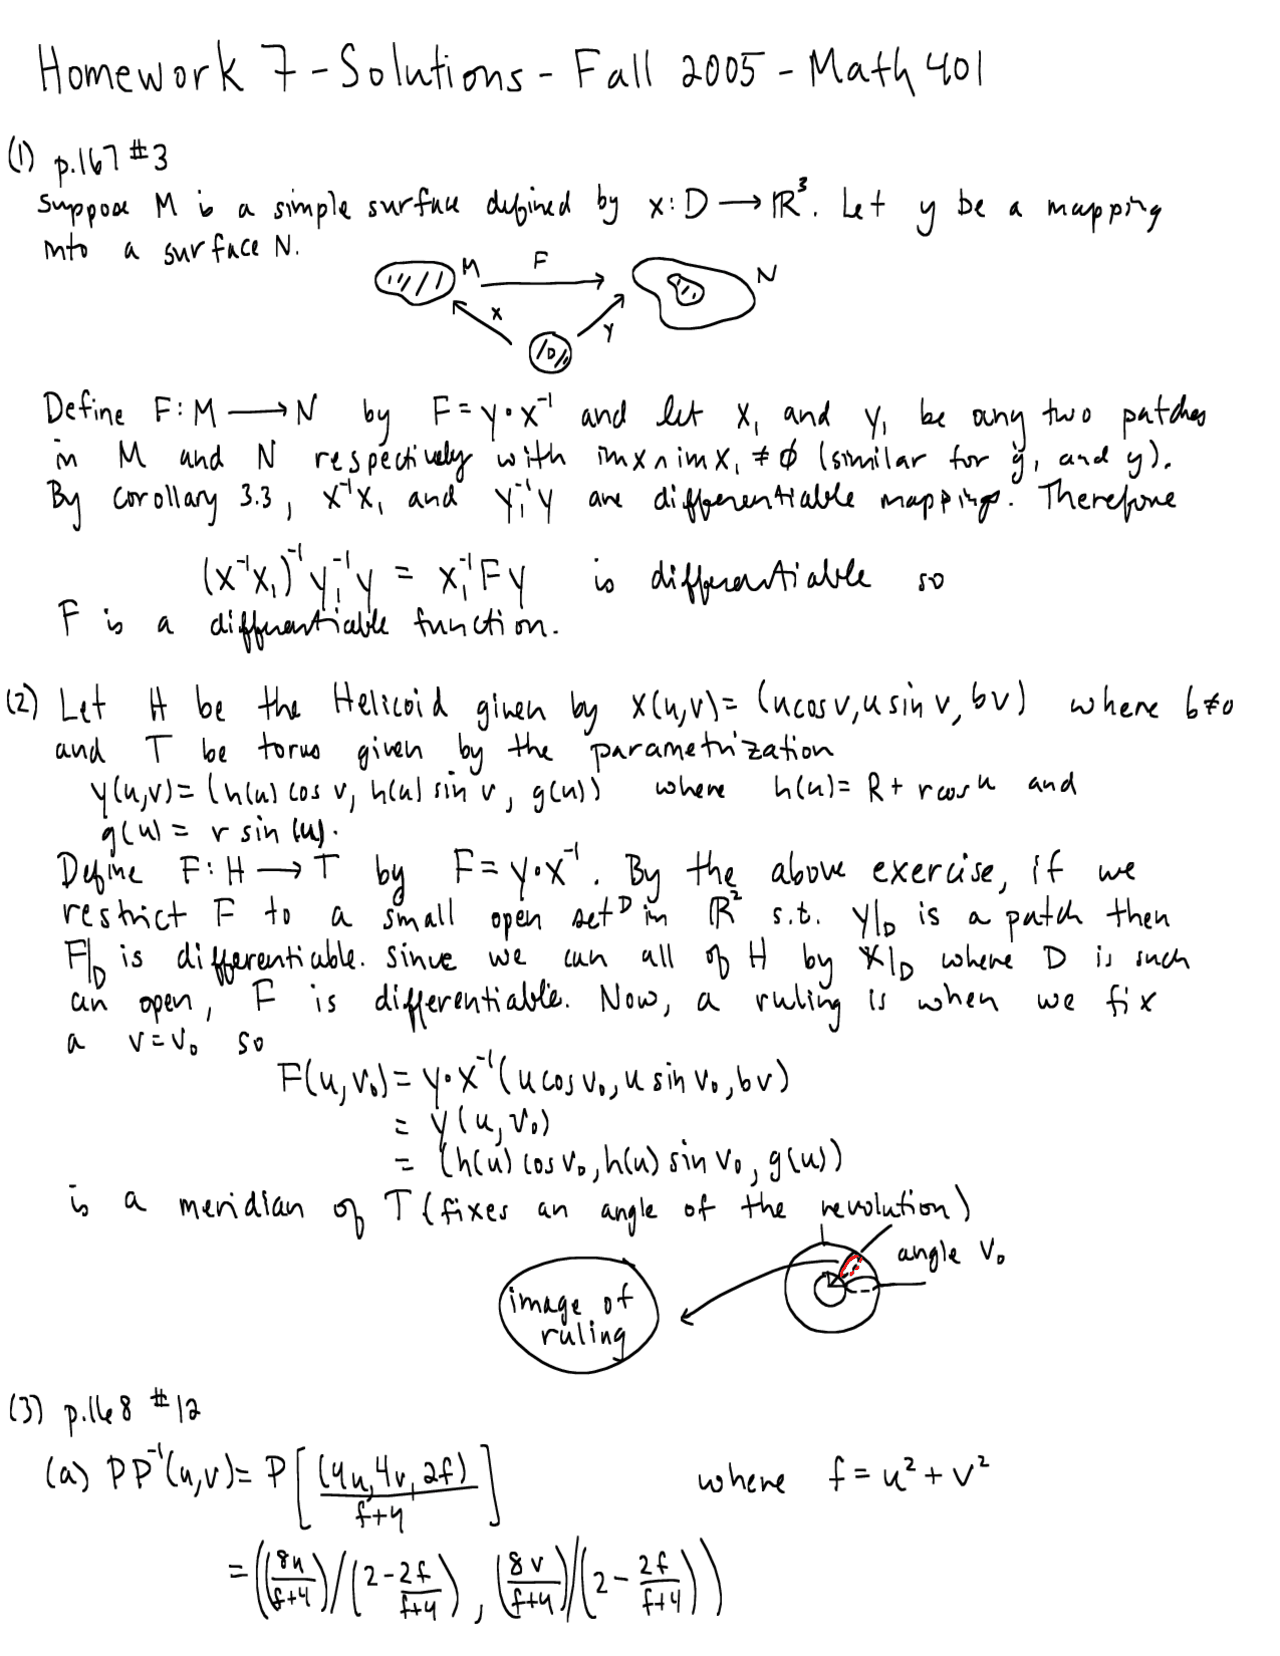 Homework 7 - Solutions - Fall 2005 - Math 401
(1) p.167 #3
Suppose M is a simple surface defined by x: D → ℝ³. Let y be a mapping
into a surface N.
M F N
x y
D
Define F: M → N by F = y∘x⁻¹ and let x₁ and y₁ be any two patches
in M and N respectively with im x ∩ im x₁ ≠ ∅ (similar for y₁ and y).
By corollary 3.3, x⁻¹x₁ and y₁⁻¹y are differentiable mappings. Therefore
(x⁻¹x₁)⁻¹y₁⁻¹y = x₁⁻¹Fy is differentiable so
F is a differentiable function.
(2) Let H be the Helicoid given by x(u,v) = (u cos v, u sin v, bv) where b≠0
and T be torus given by the parametrization
y(u,v) = (h(u) cos v, h(u) sin v, g(u)) where h(u) = R + r cos u and
g(u) = r sin(u).
Define F: H → T by F = y∘x⁻¹. By the above exercise, if we
restrict F to a small open set D in ℝ² s.t. y|_D is a patch then
F|_D is differentiable. Since we can all of H by x|_D where D is such
an open, F is differentiable. Now, a ruling is when we fix
a v = v₀ so
F(u,v₀) = y∘x⁻¹(u cos v₀, u sin v₀, bv)
= y(u,v₀)
= (h(u) cos v₀, h(u) sin v₀, g(u))
is a meridian of T (fixes an angle of the revolution)
angle v₀
image of
ruling
(3) p.168 #12
(a) PP⁻¹(u,v) = P[(4u,4v,2f)/(f+4)] where f = u² + v²
= ((8u/(f+4))/(2 - 2f/(f+4)), (8v/(f+4))/(2 - 2f/(f+4)))